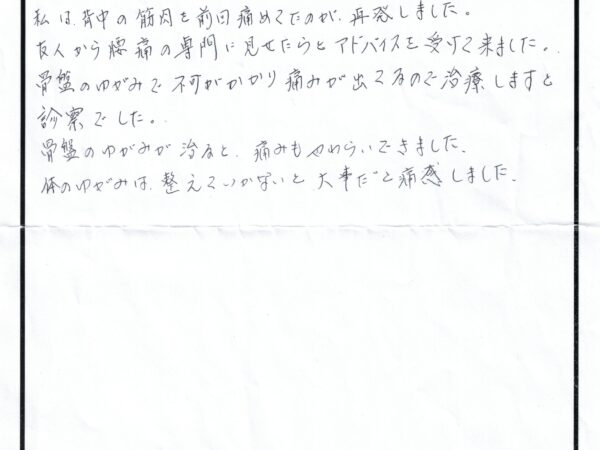 私は、背中の筋肉を前回痛めてたのが、再発しました。
友人から腰痛の専門に見せたらとアドバイスを受けて来ました。
骨盤のゆがみで不可がかかり痛みが出てるので治療しますと
診察でした。
骨盤のゆがみが治ると、痛みもやわらいできました。
体のゆがみは、整えていかないと大事だと痛感しました。